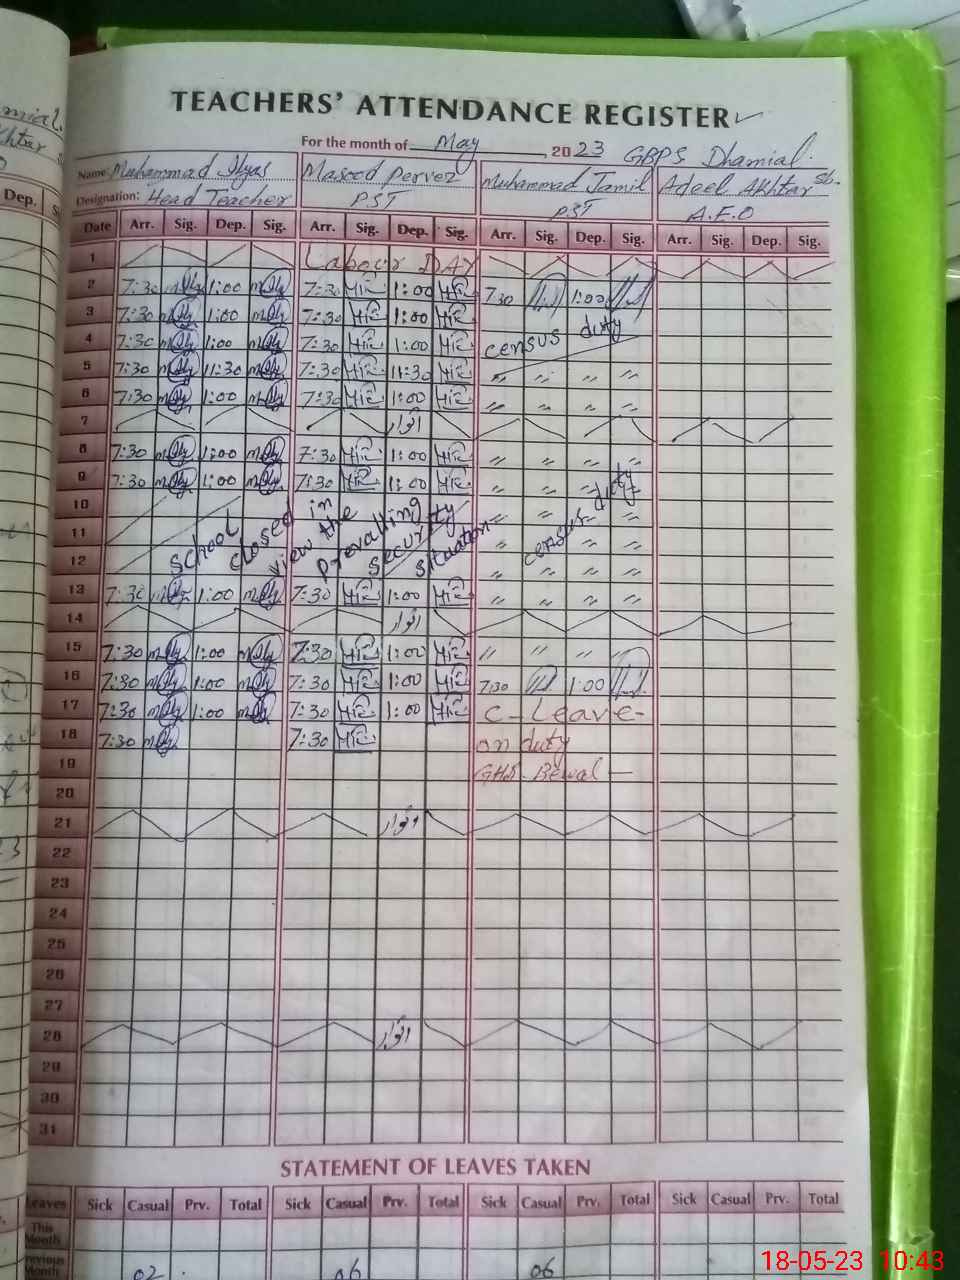 TEACHERS' ATTENDANCE REGISTER
For the month of May 2023 GBPS Dhamial.
Name: Muhammad Ilyas Masood Pervez Muhammad Jamil Adeel Akhtar Sb.
Designation: Head Teacher PST PST A.E.O
Date Arr. Sig. Dep. Sig. Arr. Sig. Dep. Sig. Arr. Sig. Dep. Sig. Arr. Sig. Dep. Sig.
1 Labour DAY
2 7:30 1:00 7:30 1:00 7:30 1:00
3 7:30 1:00 7:30 1:00 census duty
4 7:30 1:00 7:30 1:00
5 7:30 11:30 7:30 11:30 " " " "
6 7:30 1:00 7:30 1:00 " " " "
7 اتوار
8 7:30 1:00 7:30 1:00 " " " "
9 7:30 1:00 7:30 1:00 " " " "
10 school closed in " " " "
11 view the prevailing " " " " census duty
12 security situation " " " "
13 7:30 1:00 7:30 1:00 " " " "
14 اتوار
15 7:30 1:00 7:30 1:00 " " " "
16 7:30 1:00 7:30 1:00 7:30 1:00
17 7:30 1:00 7:30 1:00 C-Leave-
18 7:30 7:30 on duty
19 GHS. Bewal —
20
21 اتوار
22
23
24
25
26
27
28 اتوار
29
30
31
STATEMENT OF LEAVES TAKEN
Leaves Sick Casual Prv. Total Sick Casual Prv. Total Sick Casual Prv. Total Sick Casual Prv. Total
This Month
Previous Month 02 06 06
18-05-23 10:43